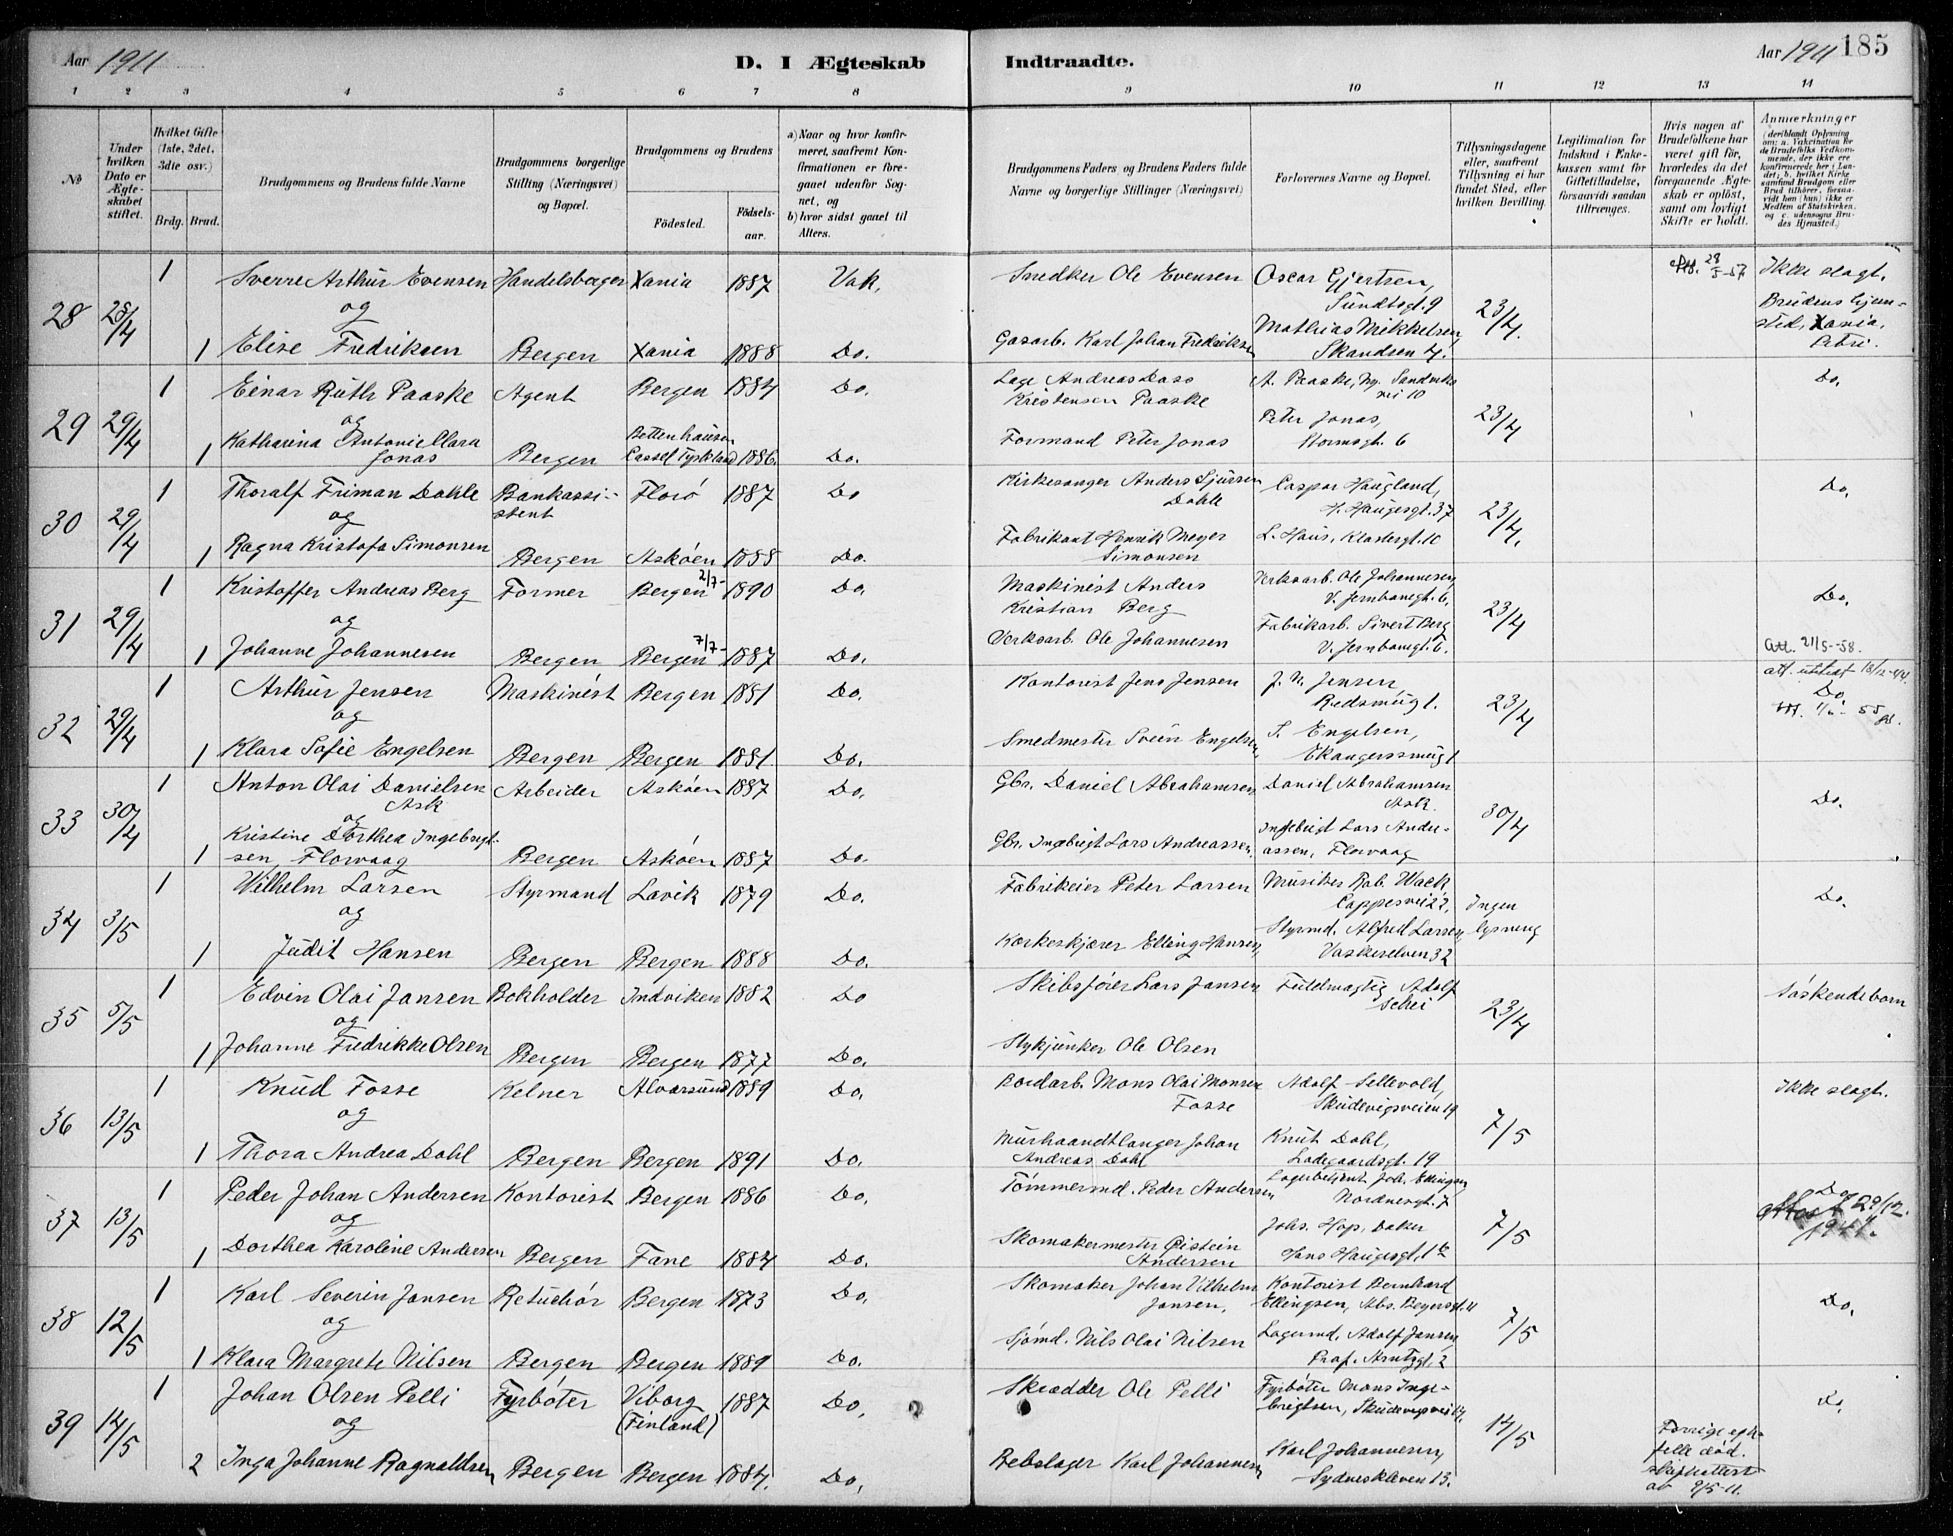 Aar 1911
D. I Ægteskab
Indtraadte.
Aar 1911
185
1 2 3 4 5 6 7 8 9 10 11 12 13 14
№
Under hvilken Dato er Ægteskabet stiftet.
Hvilket Gifte (1ste, 2det, 3die osv.)
Brdg. Brud.
Brudgommens og Brudens fulde Navne
Brudgommens borgerlige Stilling (Næringsvei) og Bopæl.
Brudgommens og Brudens
Födested.
Födselsaar.
a) Naar og hvor konfirmeret, saafremt Konfirmationen er foregaaet udenfor Sognet, og
b) hvor sidst gaaet til Alters.
Brudgommens Faders og Brudens Faders fulde Navne og borgerlige Stillinger (Næringsvei)
Forlovernes Navne og Bopæl.
Tillysningsdagene eller, saafremt Tillysning ei har fundet Sted, efter hvilken Bevilling.
Legitimation for Indskud i Enkekassen samt for Giftetilladelse, forsaavidt saadan tiltrænges.
Hvis nogen af Brudefolkene har været gift för, hvorledes da det foregaaende Ægteskab er oplöst, samt om lovligt Skifte er holdt.
Anmærkninger
(deriblandt Oplysning om: a. Vaccination for de Brudefolks Vedkommende, der ikke ere konfirmerede her i Landet; b. hvilket Kirkesamfund Brudgom eller Brud tilhörer, forsaavidt han (hun) ikke er Medlem af Statskirken, og c. udensogns Brudes Hjemsted.)
28 28/4 1 Sverre Arthur Evensen Handelsbærger Xania 1887 Vak. Snedker Ole Evensen Oscar Gjertsen, Sundtsgt. 9 23/4. 28/5-57 Ikke slagt.
og
1 Elise Fredriksen Bergen Xania 1888 Do. Gasarb. Karl Johan Fredriksen Mathias Mikkelsen, Skandsen 4. Brudens hjemsted, Xania, Petri.
29 29/4 1 Einar Ruth Paaske Agent Bergen 1884 Do. Læge Andreas Daso Kristensen Paaske A. Paaske, Ny. Sandviksvei 10 23/4 Do.
og
1 Katharina Antonie Clara Jonas Bergen Bettenhausen Cassel Tyskland 1886. Do. Formand Peter Jonas Peter Jonas, Stormsgt. 6
30 29/4 1 Thoralf Friman Dahle Bankassistent Florø 1887 Do Kirkesanger Anders Sjursen Dahle Caspar Haugland, H. Haugesgt. 37 23/4. Do.
og
1 Ragna Kristofa Simonsen Bergen Askøen 1888 Do. Fabrikant Henrik Meyer Simonsen L. Haus, Klostergt. 10
31 29/4 1 Kristoffer Andreas Berg Former Bergen 2/7- 1890 Do. Maskinist Anders Kristian Berg Verksarb. Ole Johannesen V. Jernbanegt. 6, 23/4 Do.
og
1 Johanne Johannesen Bergen Bergen 7/7- 1887 Do. Verksarb. Ole Johannesen Fabrikarb. Sivert Berg V. Jernbanegt. 6. Att. 21/5-58.
32 29/4 1 Arthur Jensen Maskinist Bergen 1881 Do. Kontorist Jens Jensen J. N. Jensen Redsmugt. 23/4 att. utstedt 18/12-44. Do.
og
1 Klara Sofie Engelsen Bergen Bergen 1881. Do. Smedmester Svein Engelsen, S. Engelsen, Skangerssmugt
33 30/4 1 Anton Olai Danielsen Ask Arbeider Askøen 1887 Do. Gbr. Daniel Abrahamsen Daniel Abrahamsen Ask. 30/4 Do.
og
1 Kristine Dorthea Ingebrigtsen, Florvaag Bergen Askøen 1887 Do. Gbr. Ingebrigt Lars Andreassen. Ingebrigt Lars Andreassen, Florvaag
34 3/5 1 Wilhelm Larsen Styrmand Lavik 1879 Do. Fabrikeier Peter Larsen Musiker Rob. Wack Cappesvei 22, Ingen lysning Do.
og
1 Judit Hansen Bergen Bergen 1888 Do. Korkeskjærer Elling Hansen, Styrmd. Alfred Larsen, Vaskerelven 32
35 5/5 1 Edvin Olai Jansen Bokholder Indviken 1882 Do Skibsfører Lars Jansen Fuldmægtig Adolf Schei 23/4 Søskendebarn
og
1 Johanne Fredrikke Olsen Bergen Bergen 1877 Do. Stykjunker Ole Olsen
36 13/5 1 Knud Fosse Kelner Alversund 1889 Do. Bordarb. Mons Olai Monsen Fosse Adolf Sellevold, Skudevigsveien 19 7/5 Ikke slagt.
og
1 Thora Andrea Dahl Bergen Bergen 1891 Do. Murhaandtlanger Johan Andreas Dahl Knut Dahl, Ladegaardsgt. 19
37 13/5 1 Peder Johan Andersen Kontorist Bergen 1886 Do. Tømmermd. Peder Andersen Lagerbetjent Joh. Ellingsen, Nordnesgt. 7 7/5 Do. attest 29/12. 1941.
og
1 Dorthea Karoline Andersen Bergen Fane 1884 Do. Skomakermester Øistein Andersen Johs. Hop, Baker Hans Haugesgt. 1
38 12/5 1 Karl Severin Jansen Retuchør Bergen 1873 Do. Skomaker Johan Vilhelm Jansen, Kontorist Bernhard Ellingsen, Abs. Beyersgt. 11 7/5 Do.
og
1 Klara Margrete Nilsen Bergen Bergen 1889 Do. Sjømd. Nils Olai Nilsen Lagermd. Adolf Jansen, Prof. Arntzgt. 2
39 14/5 1 Johan Olsen Pelli Fyrbøter Viborg (Finland) 1887 Do. Skrædder Ole Pelli Fyrbøter Mons Ingebrigtsen, Skudevigsvei 14. 14/5 Do.
og
2 Inga Johanne Ragnaldsen Bergen Bergen 1884. Do. Rebslager Karl Johannesen Karl Johannesen, Sydneskleven 13. Forrige egtefelle død. Skifteattest av 9/5-11.